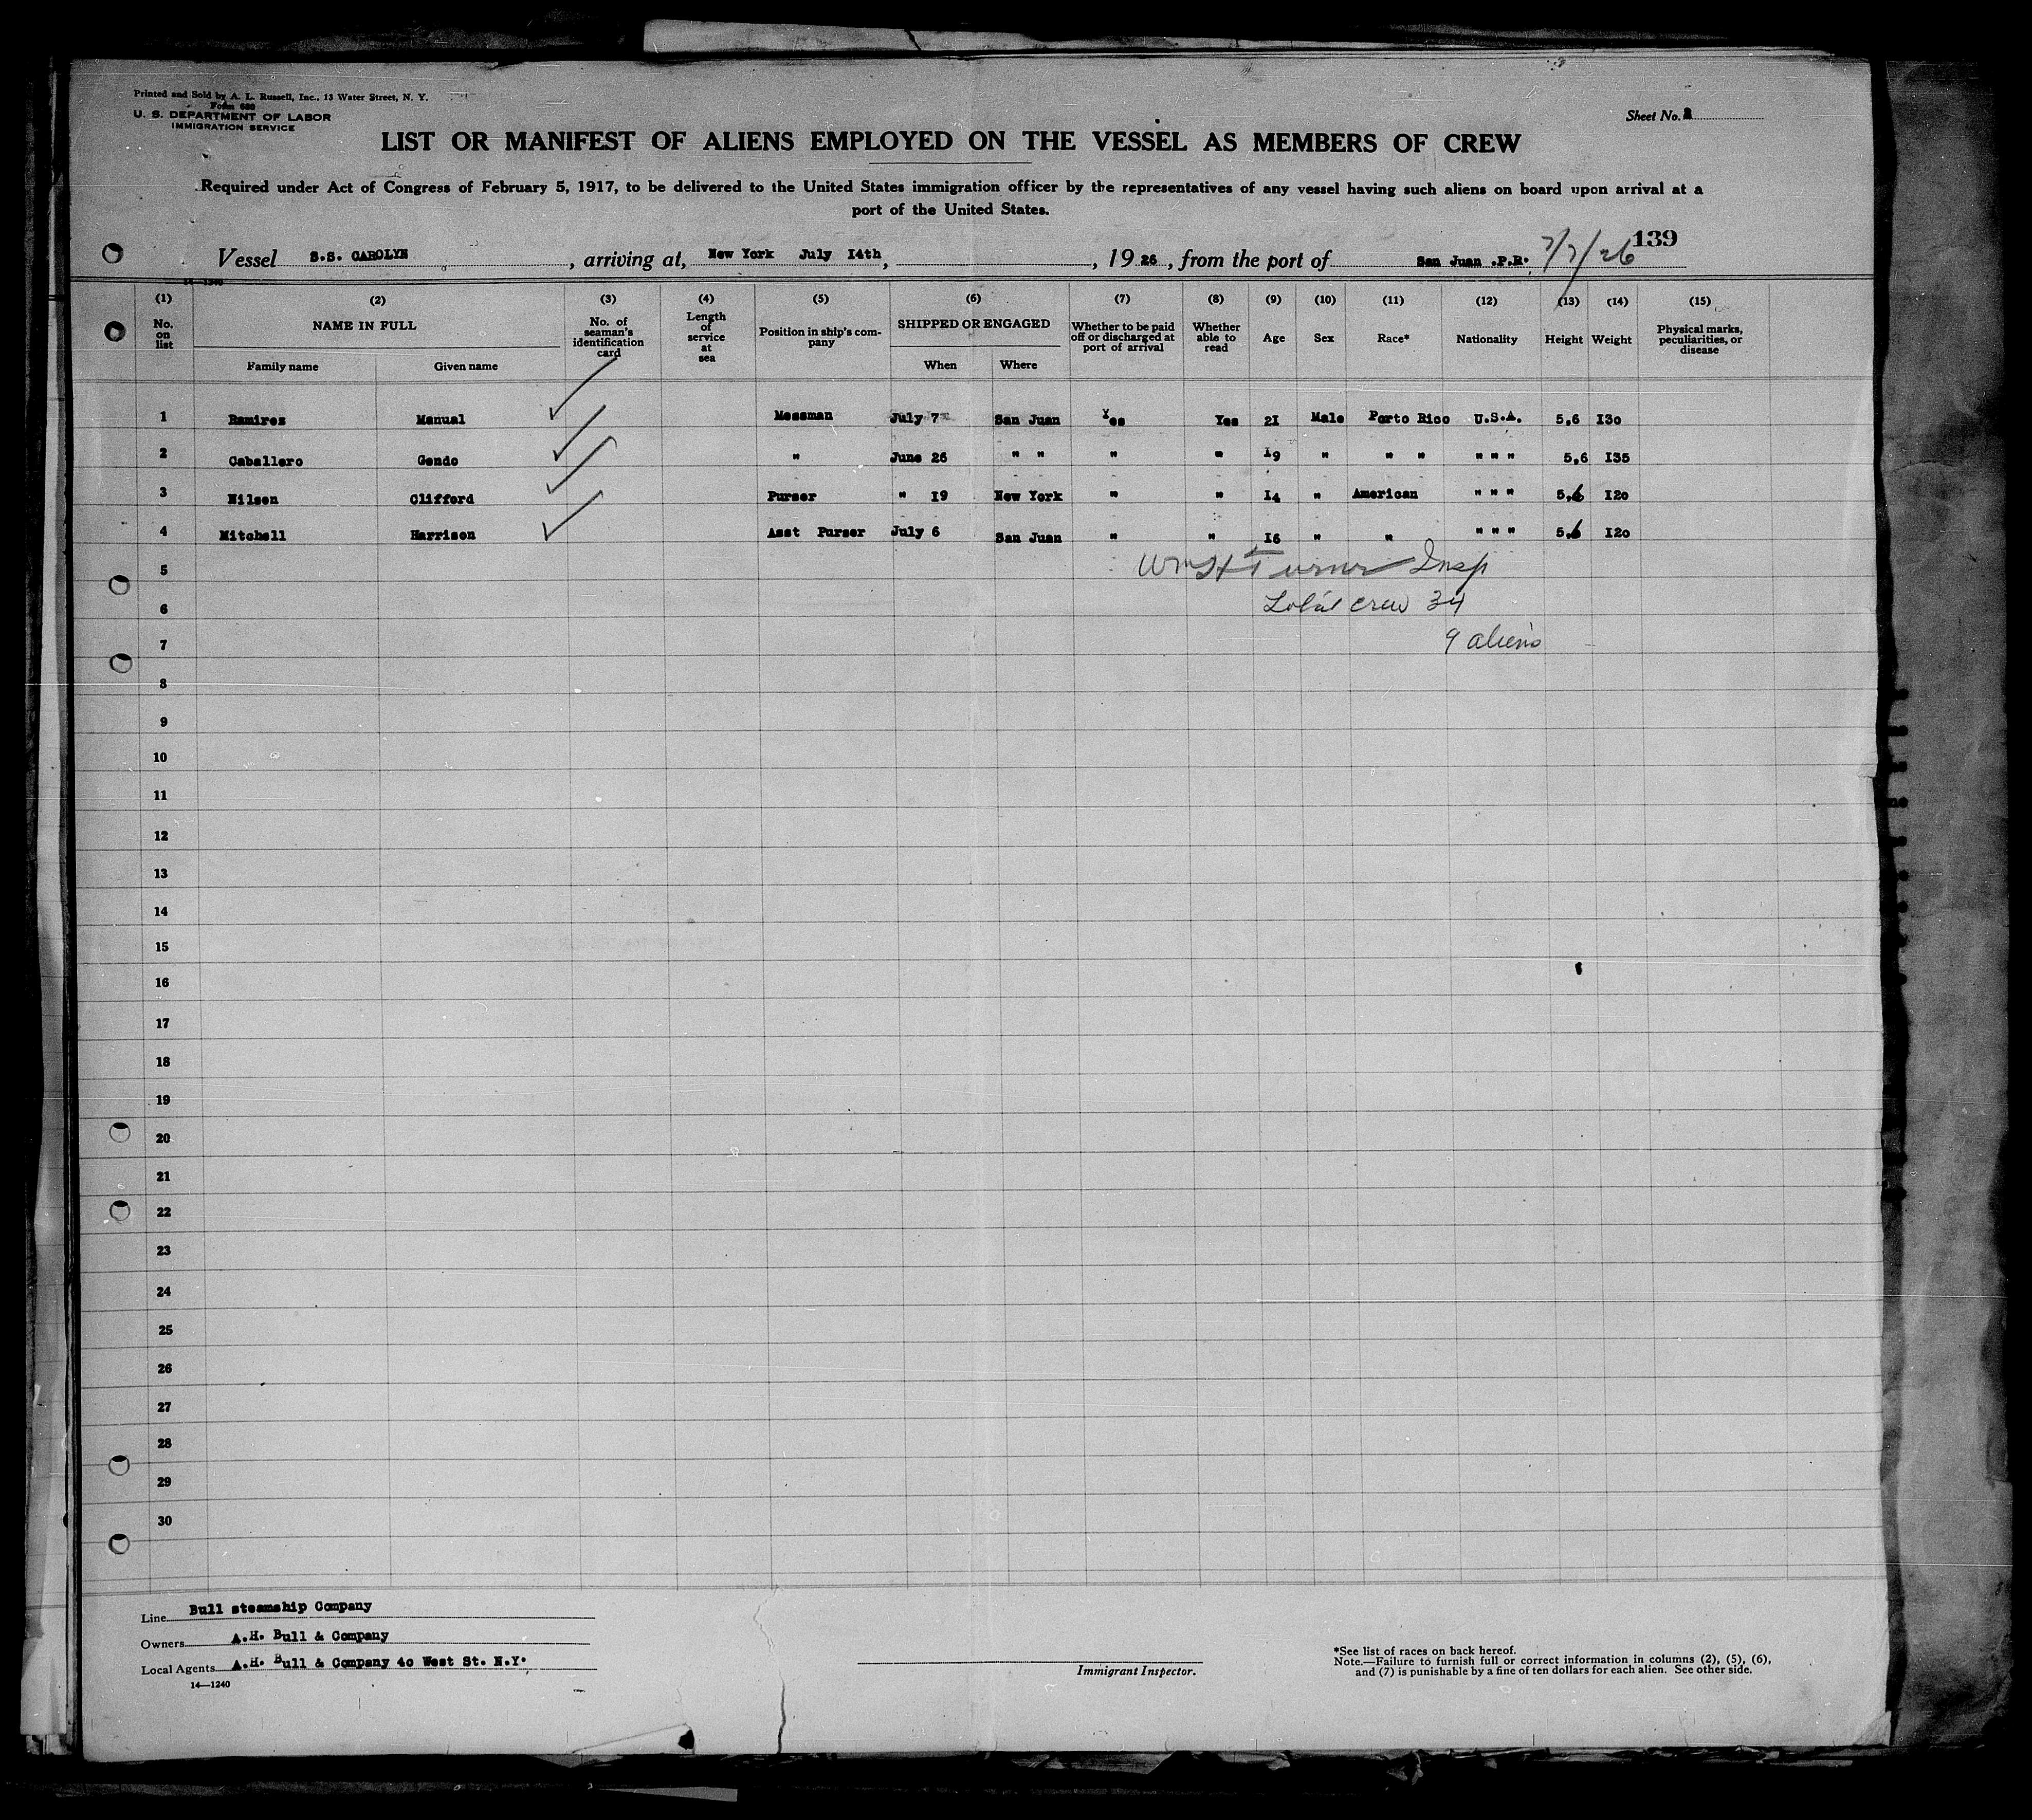 Printed and Sold by A. L. Russell, Inc., 13 Water Street, N. Y.
Form 680
U. S. DEPARTMENT OF LABOR
IMMIGRATION SERVICE
Sheet No. 2
LIST OR MANIFEST OF ALIENS EMPLOYED ON THE VESSEL AS MEMBERS OF CREW
Required under Act of Congress of February 5, 1917, to be delivered to the United States immigration officer by the representatives of any vessel having such aliens on board upon arrival at a
port of the United States.
139
Vessel S.S. CAROLYN, arriving at, New York July 14th, , 1926, from the port of San Juan .P.R. 7/7/26
14-1240
(1) (2) (3) (4) (5) (6) (7) (8) (9) (10) (11) (12) (13) (14) (15)
No. on list NAME IN FULL No. of seaman's identification card Length of service at sea Position in ship's company SHIPPED OR ENGAGED Whether to be paid off or discharged at port of arrival Whether able to read Age Sex Race* Nationality Height Weight Physical marks, peculiarities, or disease
Family name Given name When Where
1 Ramirez Manual Messman July 7 San Juan Yes Yes 21 Male Porto Rico U.S.A. 5,6 130
2 Caballero Gendo " June 26 " " " " 19 " " " " " " 5,6 135
3 Nilsen Clifford Purser " 19 New York " " 14 " American " " " 5,6 120
4 Mitchell Harrison Asst Purser July 6 San Juan " " 16 " " " " " 5,6 120
5 Wm H Turner Insp
6 Total crew 34
7 9 aliens
8
9
10
11
12
13
14
15
16
17
18
19
20
21
22
23
24
25
26
27
28
29
30
Line Bull steamship Company
Owners A.H. Bull & Company
Local Agents A.H. Bull & Company 40 West St. N.Y.
14—1240
Immigrant Inspector.
*See list of races on back hereof.
Note.—Failure to furnish full or correct information in columns (2), (5), (6),
and (7) is punishable by a fine of ten dollars for each alien. See other side.